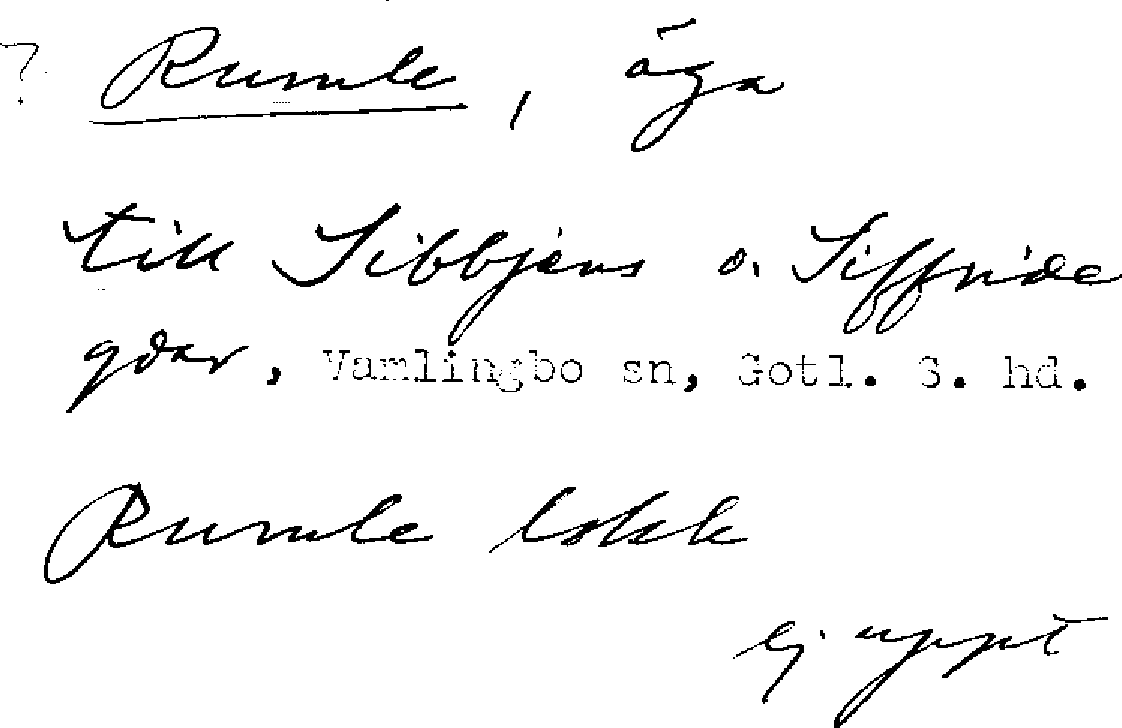 ? Rumle, äga
till Sibbjäns o. Siffride
gdar, Vamlingbo sn, Gotl. S. hd.
Rumle lokk
ej uppt